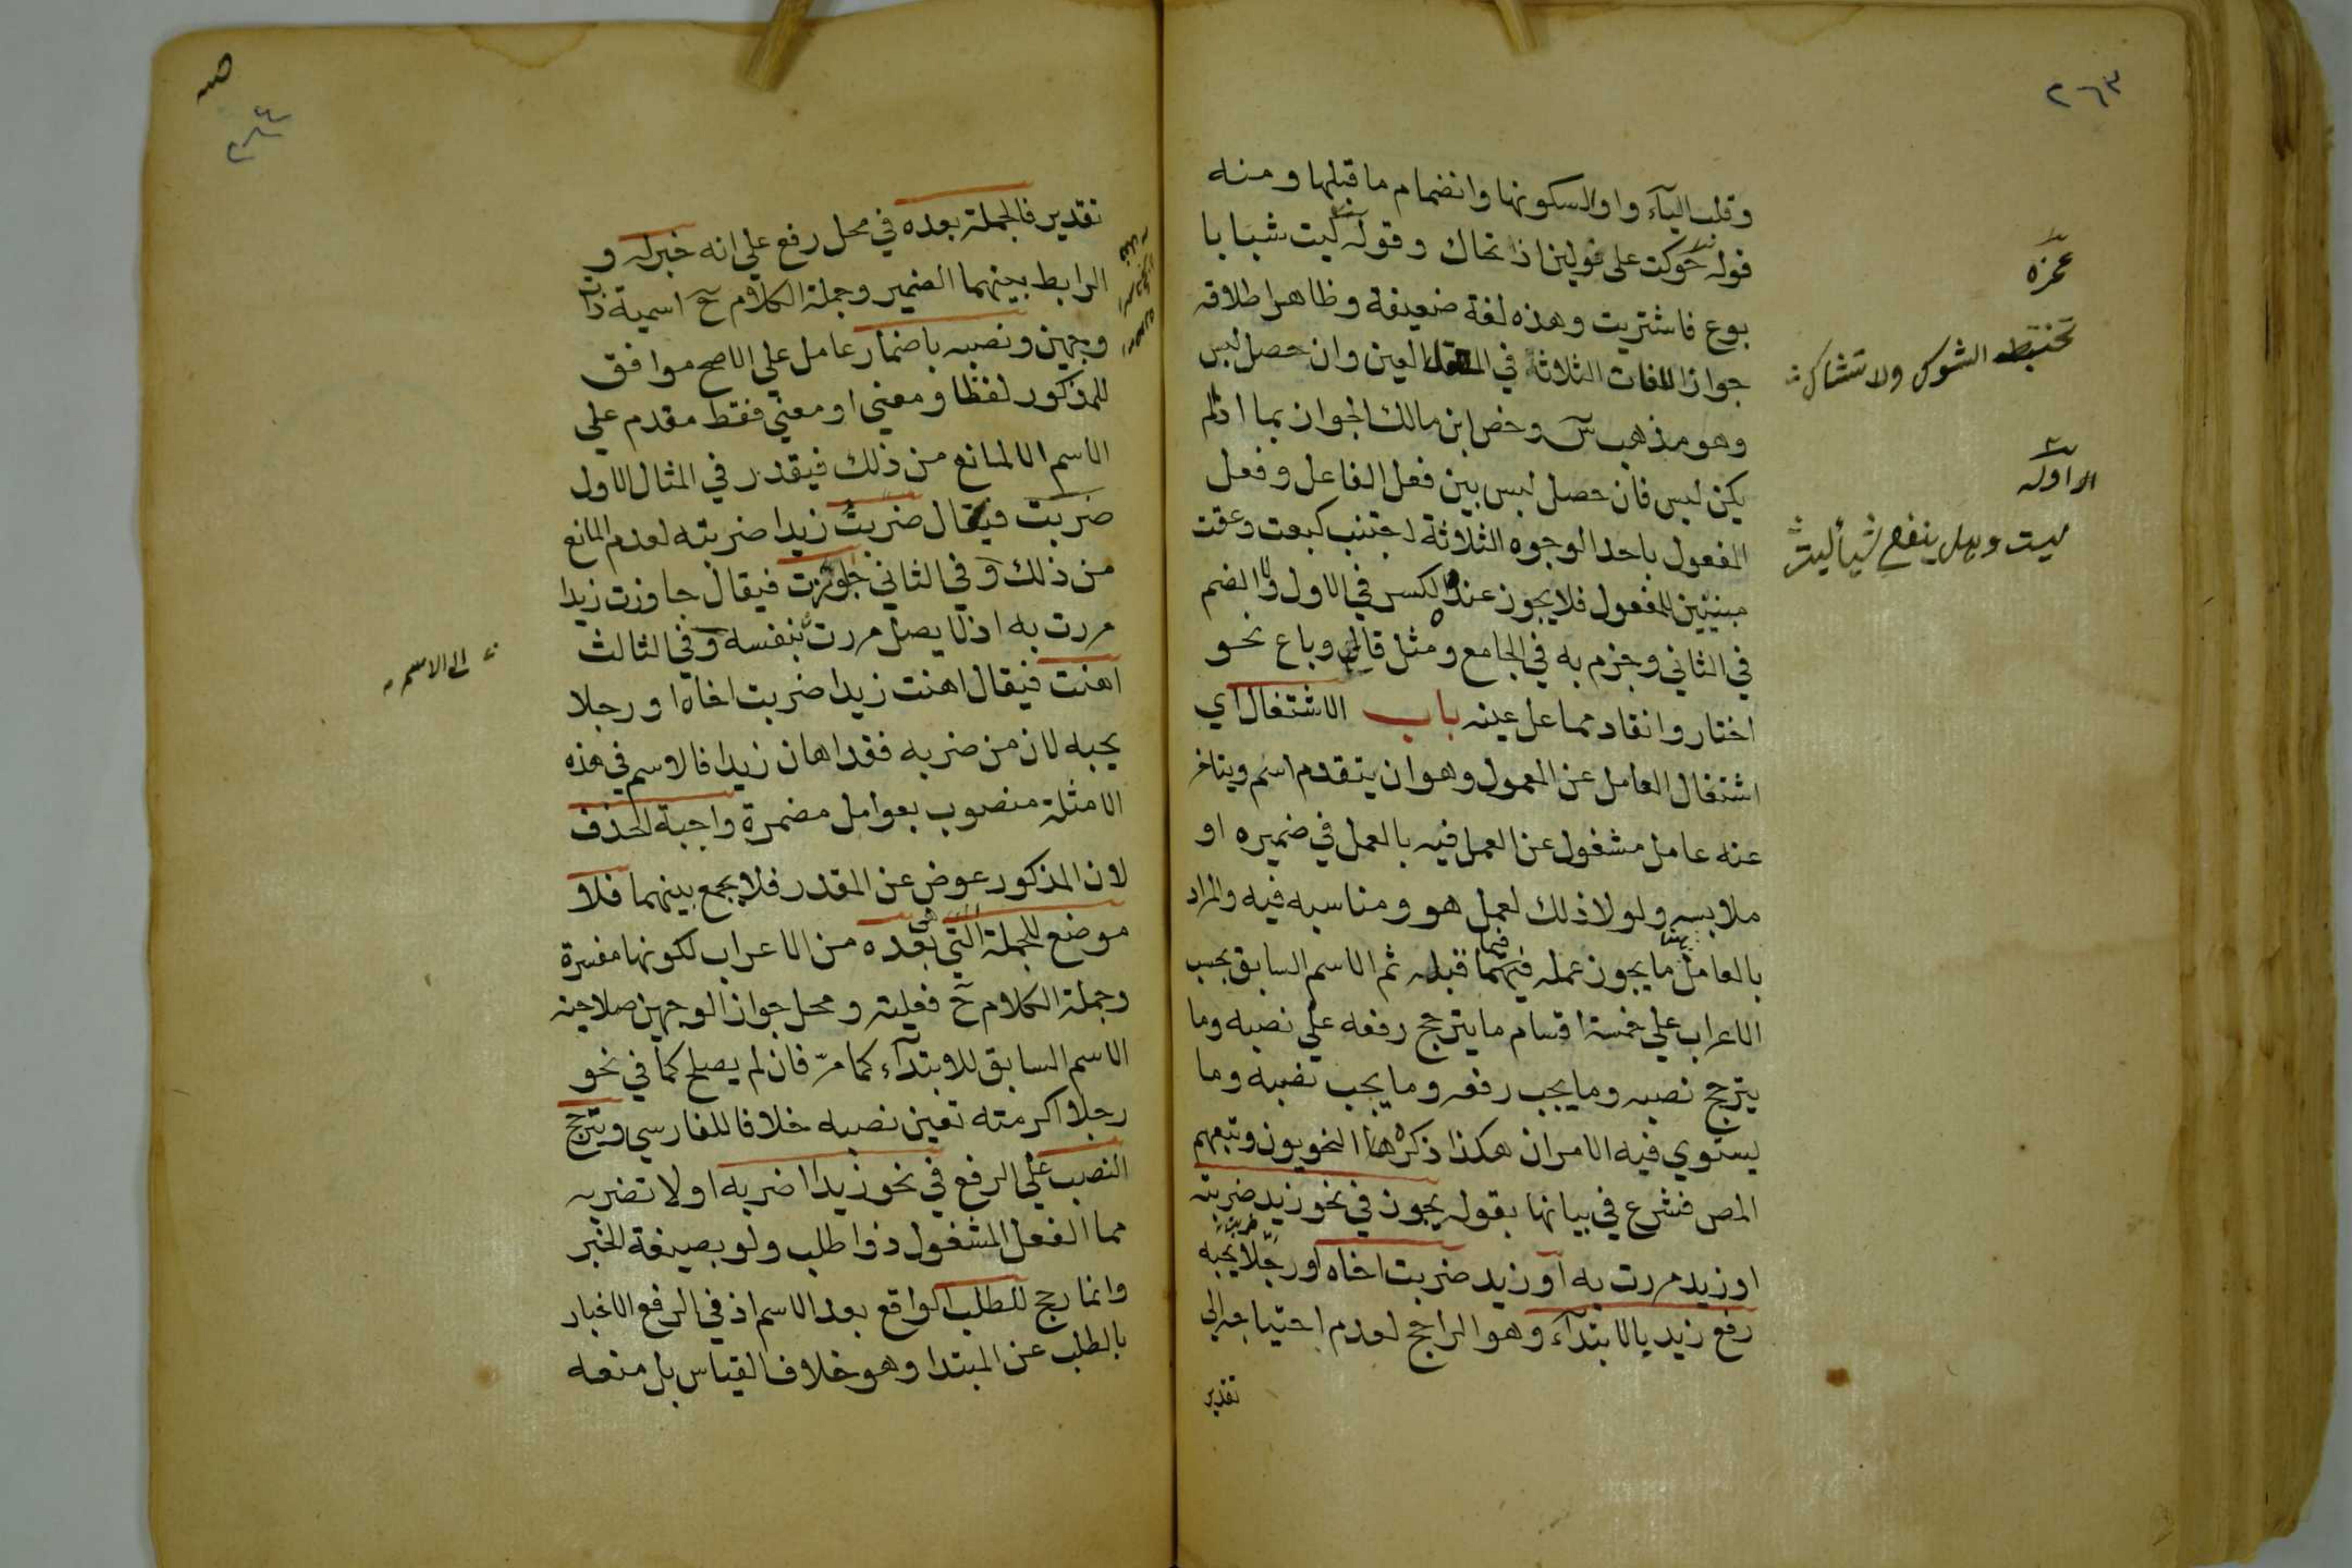 ٢٦٣
وقلب الياء واوا لسكونها وانضمام ما قبلها ومنه
قوله حوكت على نولين اذ تحاك وقوله ليت شبابا
بوع فاشتريت وهذه لغة ضعيفة وظاهر اطلاقه
جواز اللغات الثلاثة في المعتل العين وان حصل لبس
وهو مذهب س وخص ابن مالك الجواز بما اذا لم
يكن لبس فان حصل لبس بين فعل الفاعل وفعل
المفعول باحد الوجوه الثلاثة اجتنب كبعت وعقت
مبنيين للمفعول فلا يجوز عنده الكسر في الاول ولا الضم
في الثاني وجزم به في الجامع ومثل قال وباع نحو
اختار وانقاد مما عل عينه باب الاشتغال اي
اشتغال العامل عن المعمول وهو ان يتقدم اسم ويتاخر
عنه عامل مشغول عن العمل فيه بالعمل في ضميره او
ملابسه ولولا ذلك لعمل هو ومناسبه فيه والمراد
بالعامل هنا ما يجوز عمله فيما قبله ثم الاسم السابق بحسب
الاعراب علي خمسة اقسام ما يترجح رفعه علي نصبه وما
يترجح نصبه وما يجب رفعه وما يجب نصبه وما
يستوي فيه الامران هكذا ذكره النحويون وتبعهم
المص فشرع في بيانها بقوله يجوز في نحو زيد ضربته
او زيد مررت به او زيد ضربت اخاه او رجلا يحبه
رفع زيد بالابتداء وهو الراجح لعدم احتياجه الي
تقدير
عجزه
تختبط الشوك ولا تشاك
اوله
ليت وهل ينفع شيأ ليت
تقدير فالجملة بعده في محل رفع علي انه خبر له و
الرابط بينهما الضمير وجملة الكلام ح اسمية ذات
وجهين ونصبه باضمار عامل علي الاصح موافق
للمذكور لفظا ومعني او معني فقط مقدم علي
الاسم الا لمانع من ذلك فيقدر في المثال الاول
ضربت فيقال ضربت زيدا ضربته لعدم المانع
من ذلك وفي الثاني جاوزت فيقال جاوزت زيدا
مررت به اذ لا يصل مررت بنفسه وفي الثالث
اهنت فيقال اهنت زيدا ضربت اخاه او رجلا
يحبه لان من ضربه فقد اهان زيدا فالاسم في هذه
الامثلة منصوب بعوامل مضمرة واجبة الحذف
لان المذكور عوض عن المقدر فلا يجمع بينهما فلا
موضع للجملة التي بعده من الاعراب لكونها مفسرة
وجملة الكلام ح فعلية ومحل جواز الوجهين صلاحية
الاسم السابق للابتداء كما مر فان لم يصلح كما في نحو
رجلا اكرمته تعين نصبه خلافا للفارسي ويترجح
النصب علي الرفع في نحو زيدا اضربه او لا تضربه
مما الفعل المشغول ذو اطلب ولو بصيغة الخبر
وانما رجح للطلب الواقع بعد الاسم اذ في الرفع الاخبار
بالطلب عن المبتدا وهو خلاف القياس بل منعه
الى الاسم